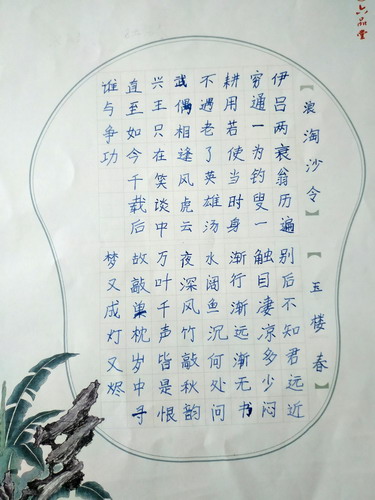 六品堂
【浪淘沙令】
伊吕两衰翁历遍
穷通一为钓叟一
耕用若使当时身
不遇老了英雄汤
武偶相逢风虎云
兴王只在笑谈中
直至如今千载后
谁与争功
【玉楼春】
别后不知君远近
触目凄凉多少闷
渐行渐远渐无书
水阔鱼沉何处问
夜深风竹敲秋韵
万叶千声皆是恨
故敲枕岁中寻
梦又成灯又烬